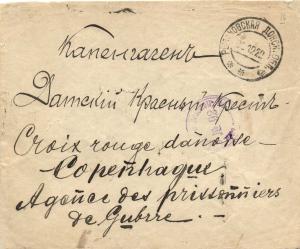 Капенгагенъ
Датскій Красный Крестъ
Croix rouge danoise
Copenhague
Agence des prisonniers
de Guerre.